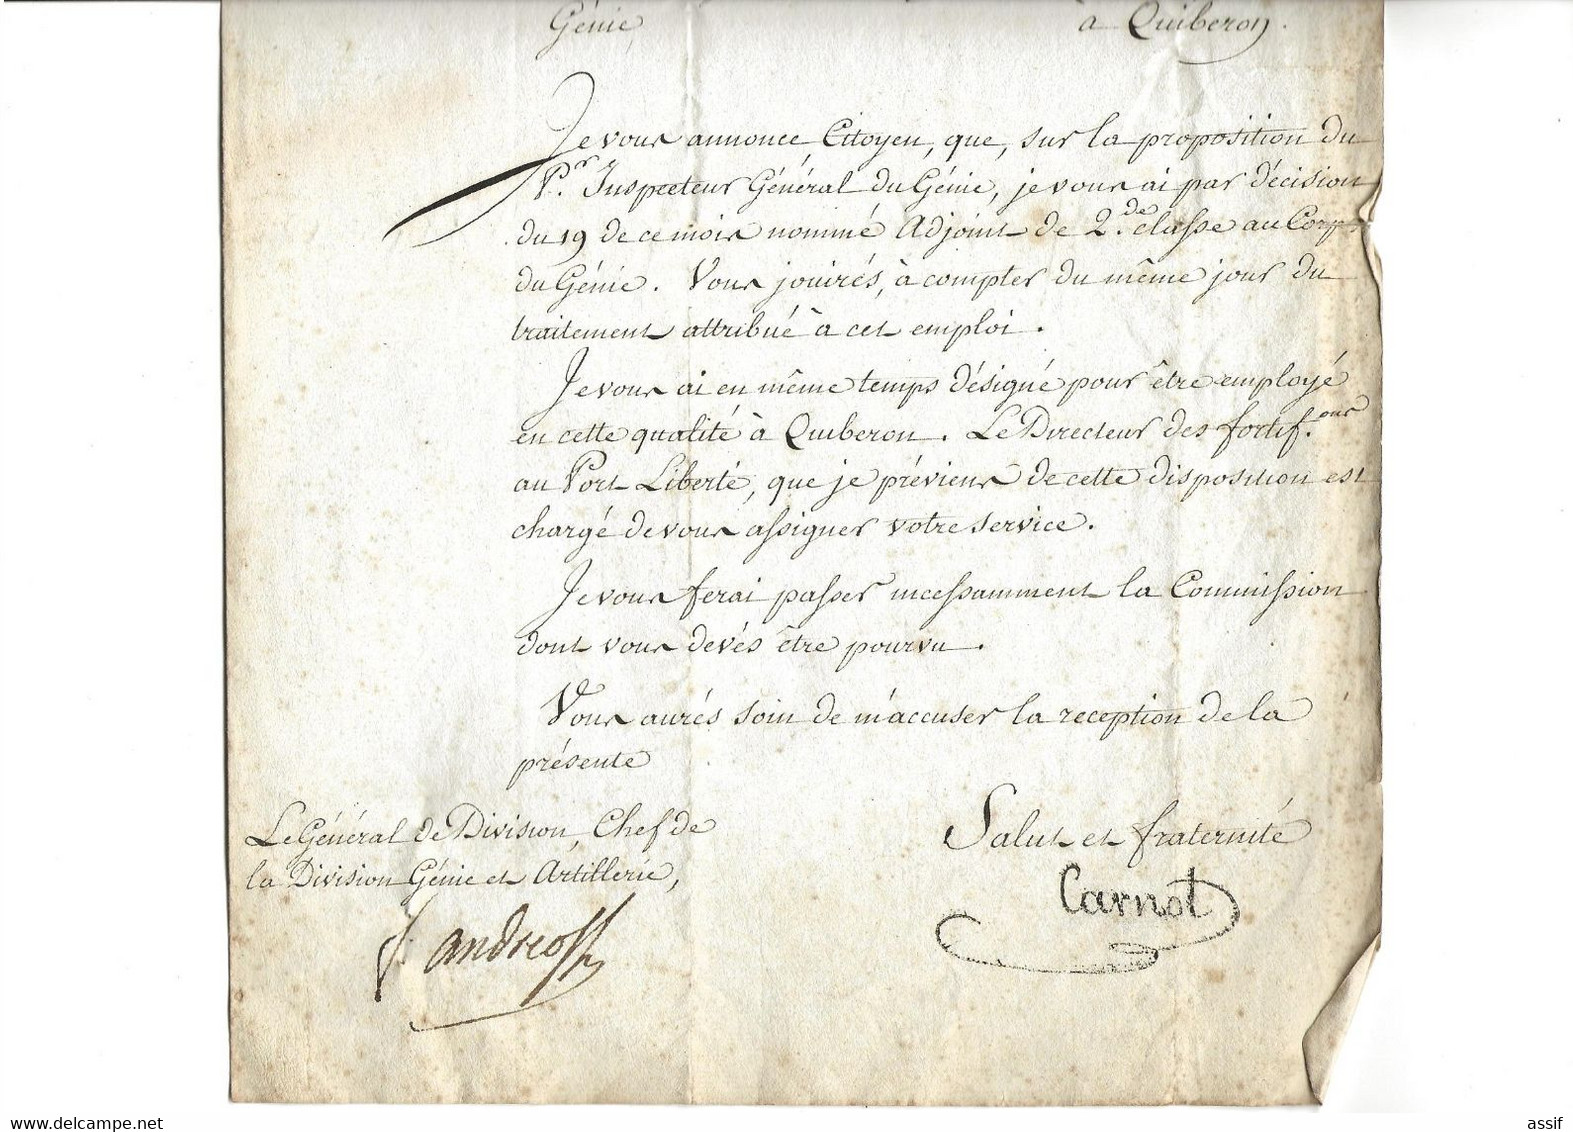 Génie, à Quiberon.
Je vous annonce, Citoyen, que, sur la proposition du
P.r Inspecteur Général du Génie, je vous ai par décision
du 19 de ce mois nommé Adjoint de 2.de classe au Corps
du Génie. Vous jouirés, à compter du même jour du
traitement attribué à cet emploi.
Je vous ai en même temps désigné pour être employé
en cette qualité à Quiberon. Le Directeur des fortif.ons
au Port Liberté, que je préviens de cette disposition est
chargé de vous assigner votre service.
Je vous ferai passer incessamment la Commission
dont vous devés être pourvu.
Vous aurés soin de m'accuser la reception de la
présente
Le Général de Division, Chef de
la Division Génie et Artillerie,
Salut et fraternité
Carnot
andreossy
delcampe.net
assif